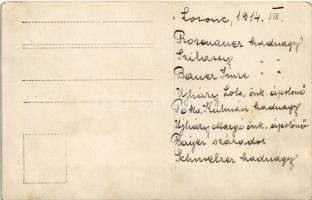 Losonc, 1914. VIII.
Rozenauer hadnagy
Szilassy " "
Bauer Imre " "
Ujházy Lola önk. ápolónő
Póka Kálmán hadnagy
Ujházy Margó önk. ápolónő
Bayer százados
Schmelzer hadnagy